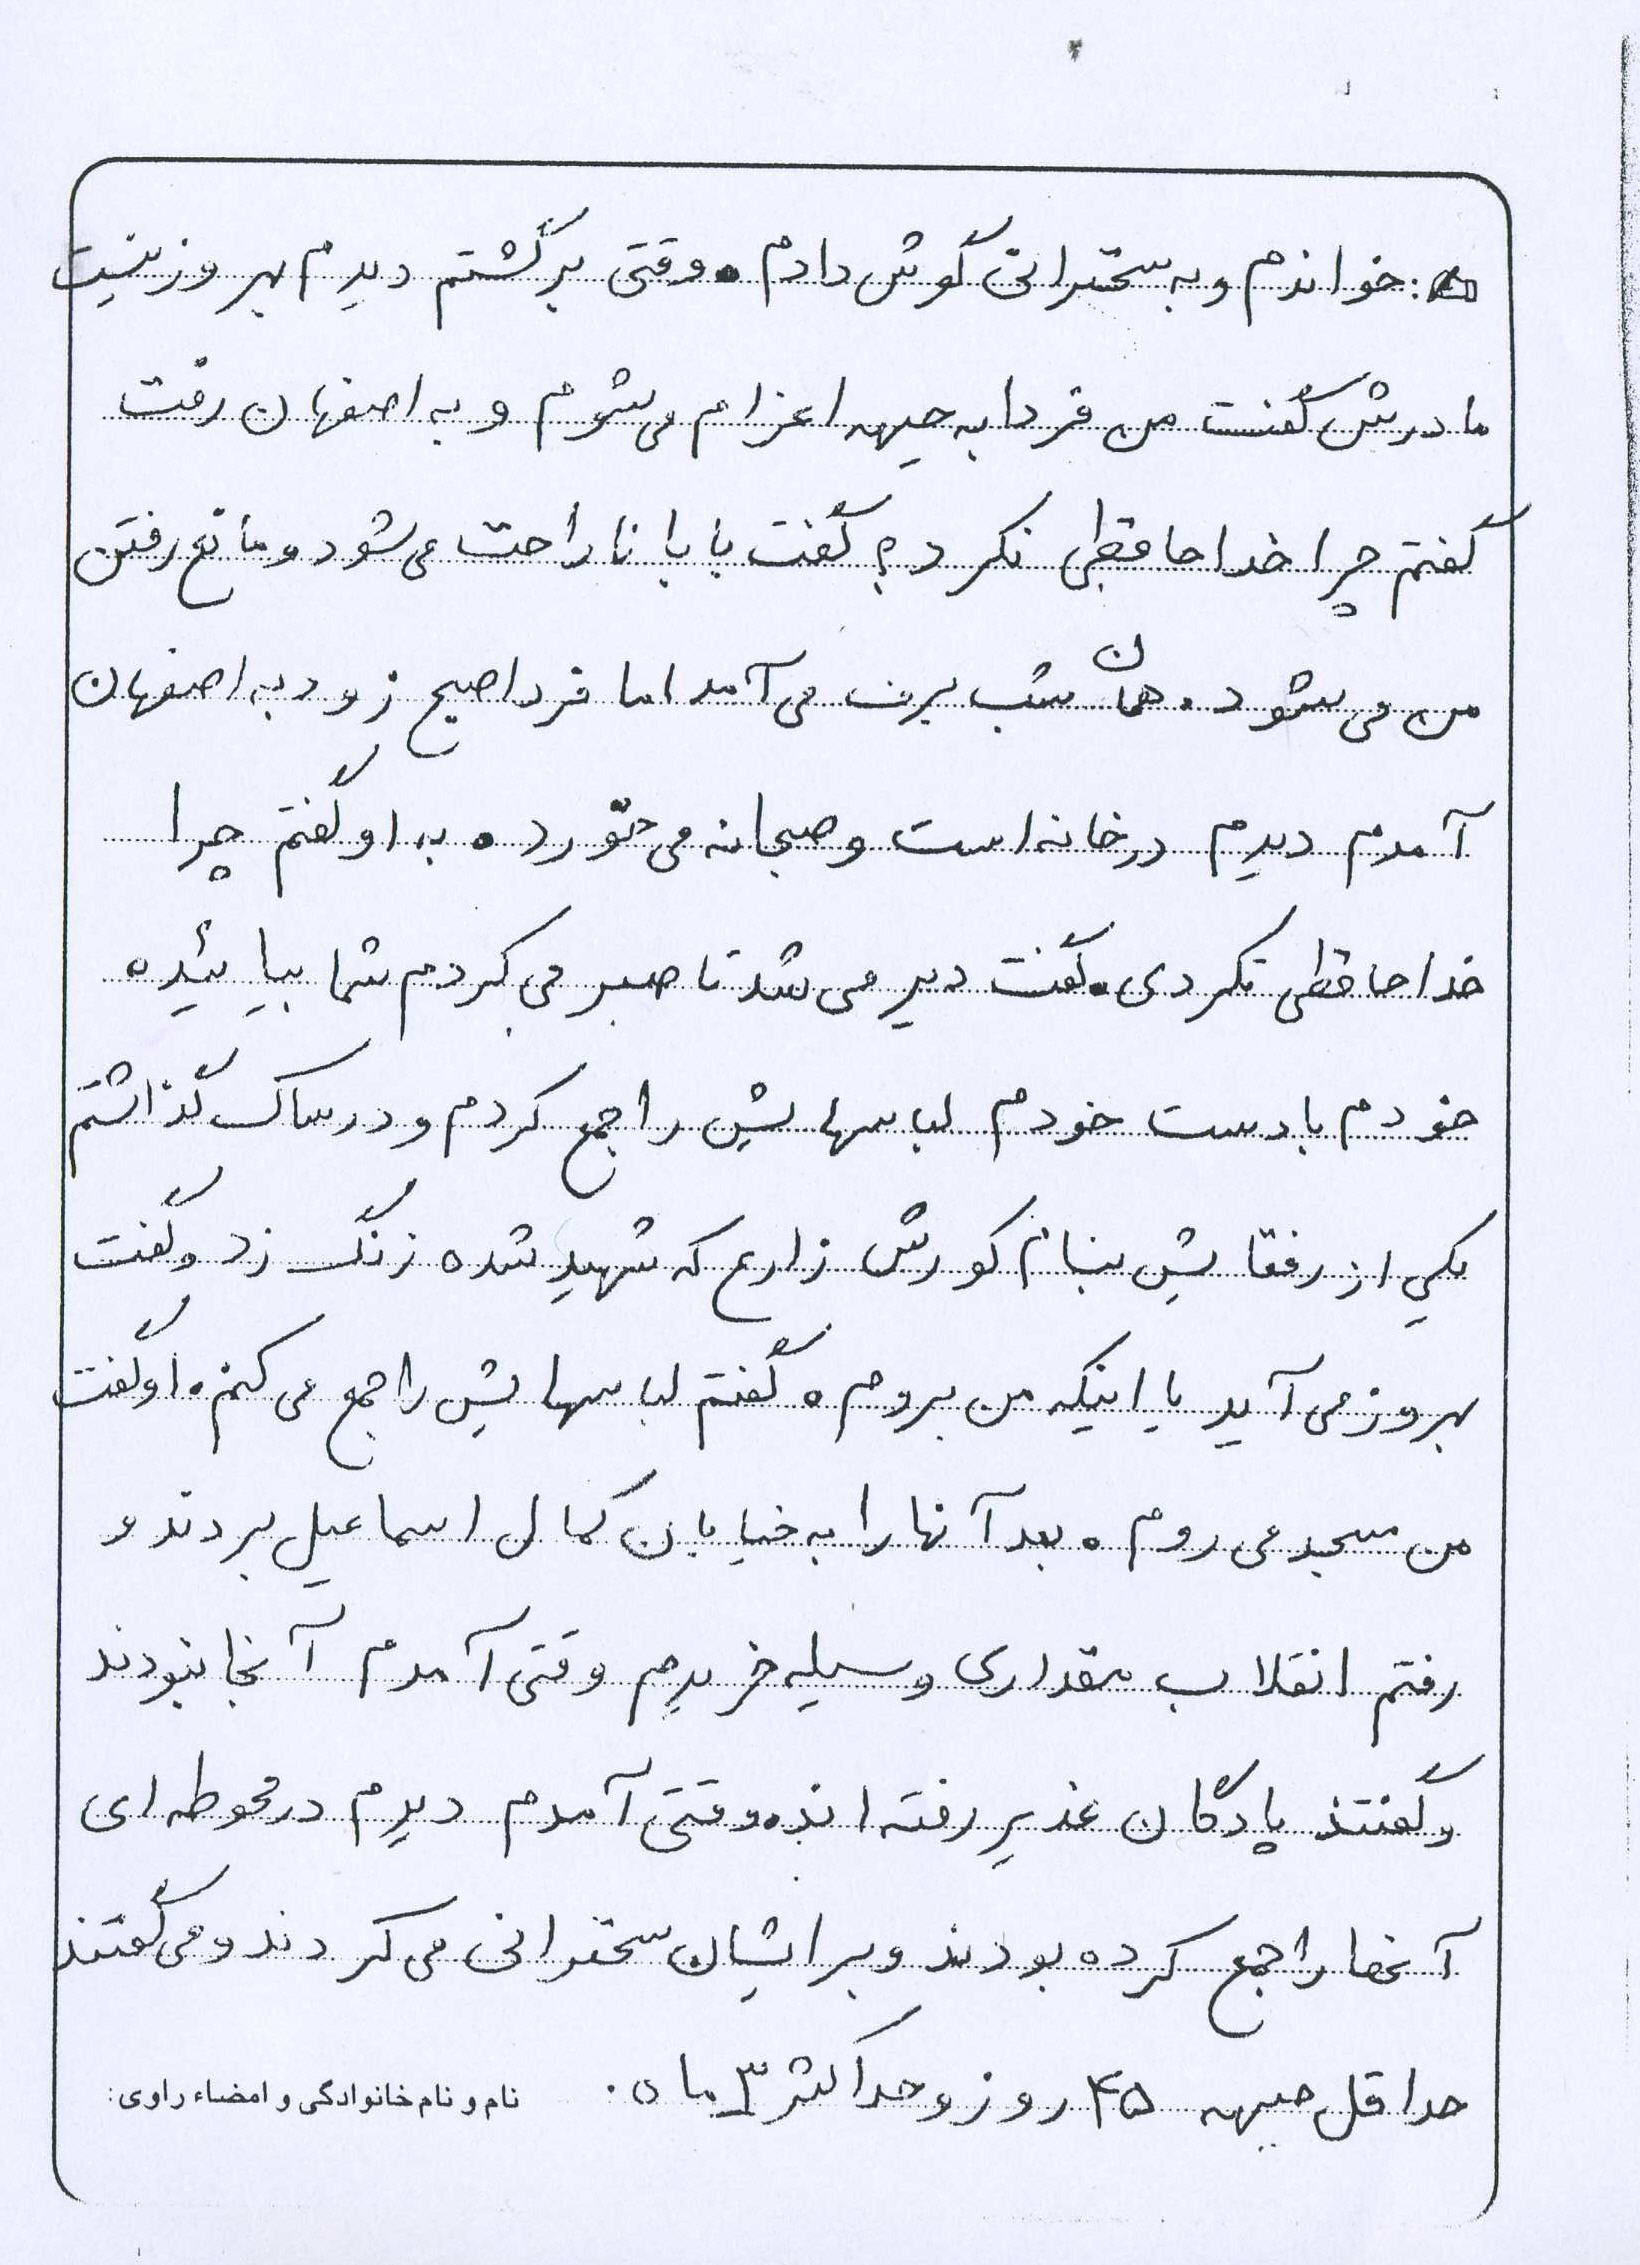 : خواندم و به سخنرانی گوش دادم. وقتی برگشتم دیدم بهروز نیست
مادرش گفت من فردا به جبهه اعزام می‌شوم و به اصفهان رفت
گفتم چرا خداحافظی نکرد؟ گفت بابا ناراحت می‌شود و مانع رفتن
من می‌شود. همان شب برف می‌آمد اما فردا صبح زود به اصفهان
آمدم دیدم در خانه است و صبحانه می‌خورد. به او گفتم چرا
خداحافظی نکردی. گفت دیر می‌شد تا صبر می‌کردم شما بیائید.
خودم با دست خودم لباسهایش را جمع کردم و در ساک گذاشتم
یکی از رفقایش بنام کورش زارع که شهید شده زنگ زد و گفت
بهروز می‌آید یا اینکه من بروم. گفتم لباسهایش را جمع می‌کنم. او گفت
من مسجد می‌روم. بعد آنها را به خیابان کمال اسماعیل بردند و
رفتم انقلاب مقداری وسیله خریدم وقتی آمدم آنجا نبودند
و گفتند پادگان غدیر رفته‌اند. وقتی آمدم دیدم در محوطه‌ای
آنها را جمع کرده بودند و برایشان سخنرانی می‌کردند و می‌گفتند
حداقل جبهه ۴۵ روز و حداکثر ۳ ماه.
نام و نام خانوادگی و امضاء راوی: